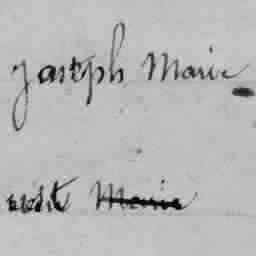 Joseph Marie
Marie